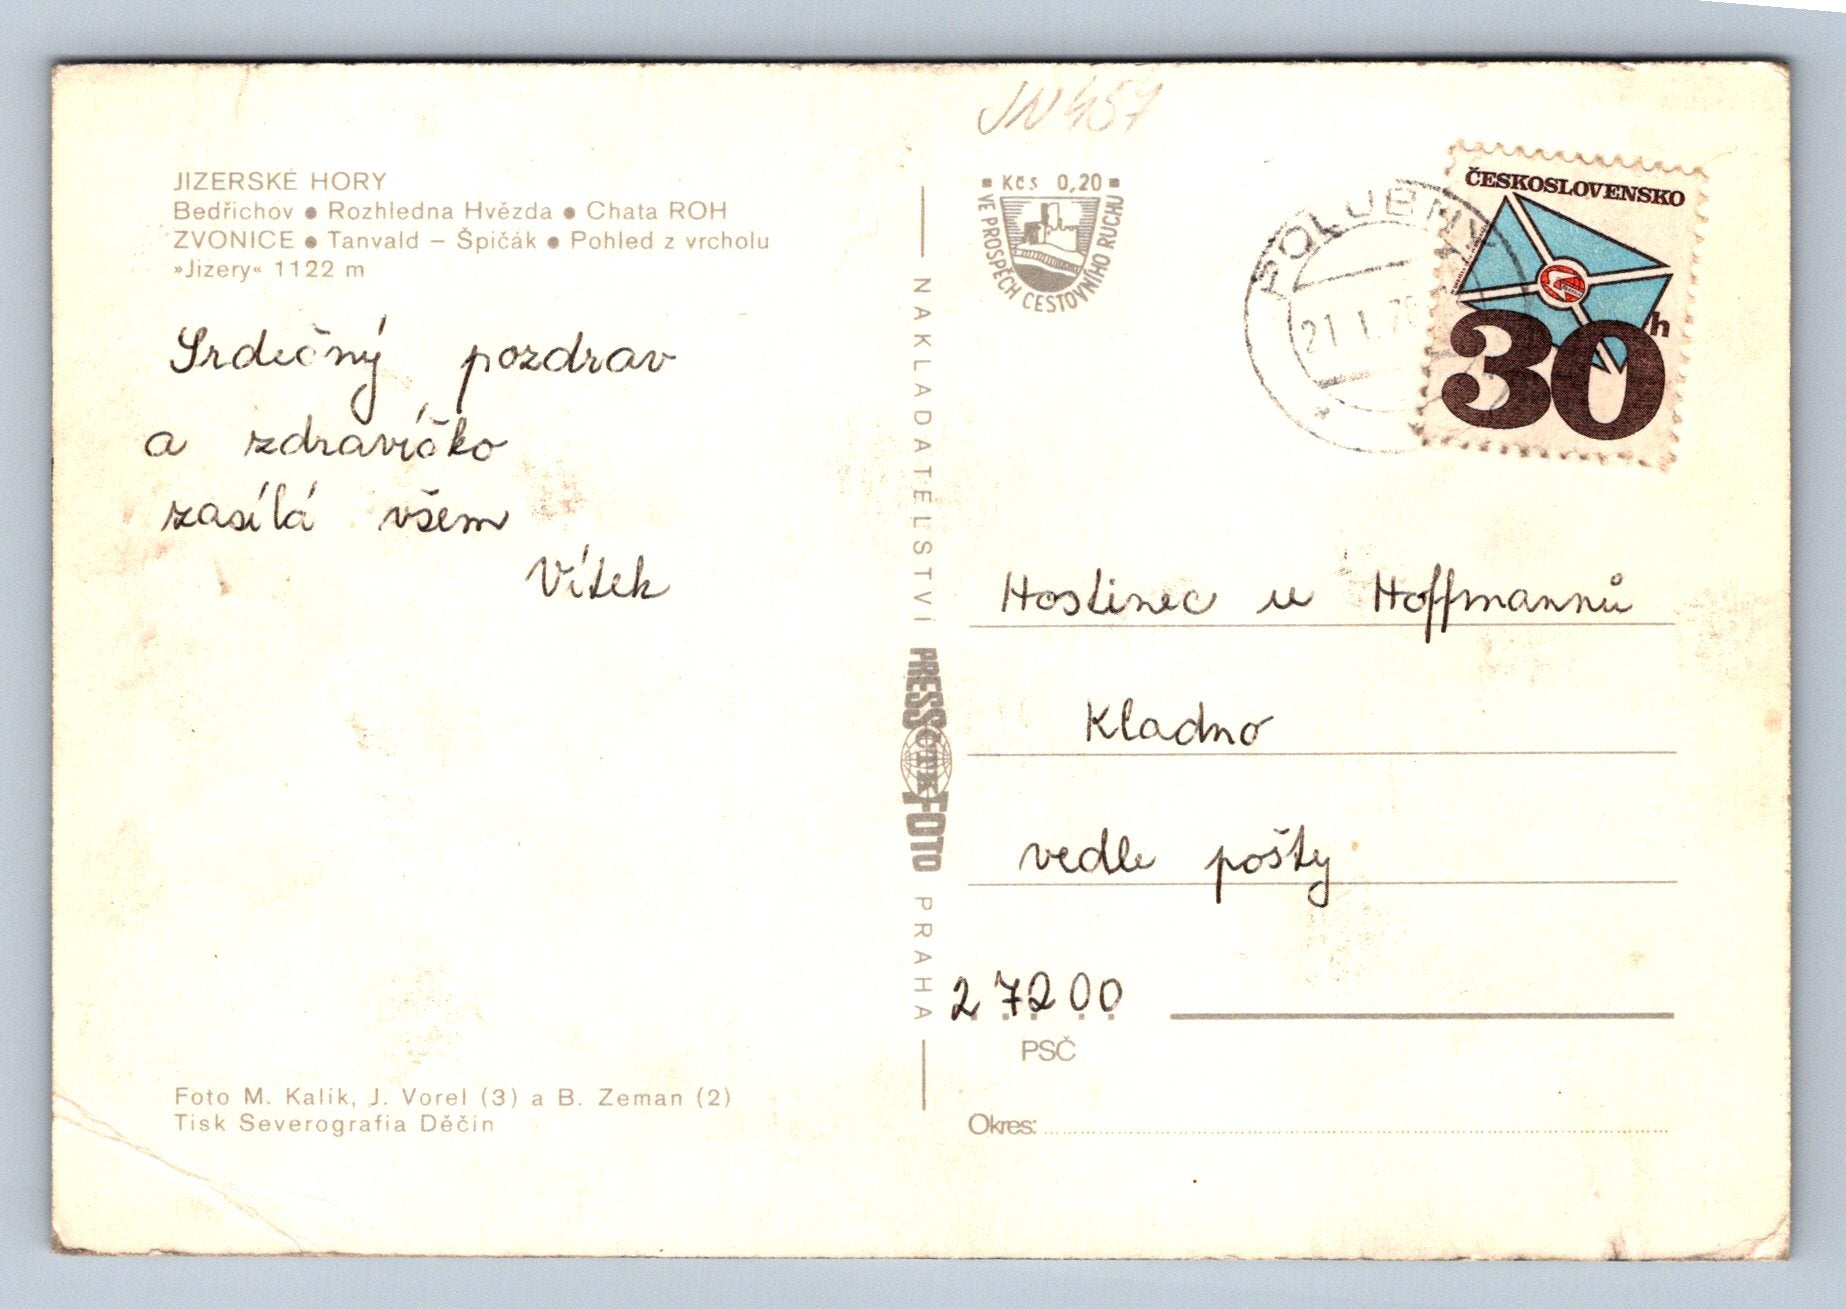 JIZERSKÉ HORY
Bedřichov ● Rozhledna Hvězda ● Chata ROH
ZVONICE ● Tanvald – Špičák ● Pohled z vrcholu
»Jizery« 1122 m
Srdečný pozdrav
a zdravíčko
zasílá všem
Vítek
Foto M. Kalík, J. Vorel (3) a B. Zeman (2)
Tisk Severografia Děčín
NAKLADATELSTVÍ PRESSČTKFOTO PRAHA
JN457
Kčs 0,20
VE PROSPĚCH CESTOVNÍHO RUCHU
POLUBNÝ
21. I. 
ČESKOSLOVENSKO
30h
Hostinec u Hoffmannů
Kladno
vedle pošty
27200
PSČ
Okres: